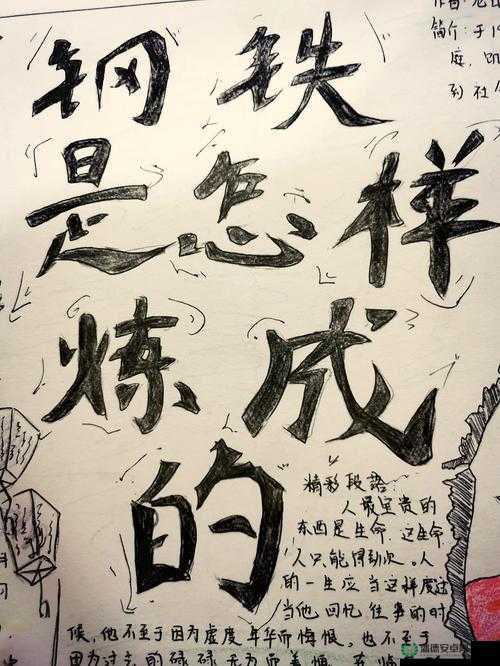 简介：于
庭，
到社
钢铁
是怎样
炼成
的
精彩段落：
人最宝贵的
东西是生命，这生命
人只能得到次。人
的一生应当这样度过
当他回忆往事的时
候，他不至于因为虚度年华而悔恨，也不至于
因为过去的碌碌无为而羞愧